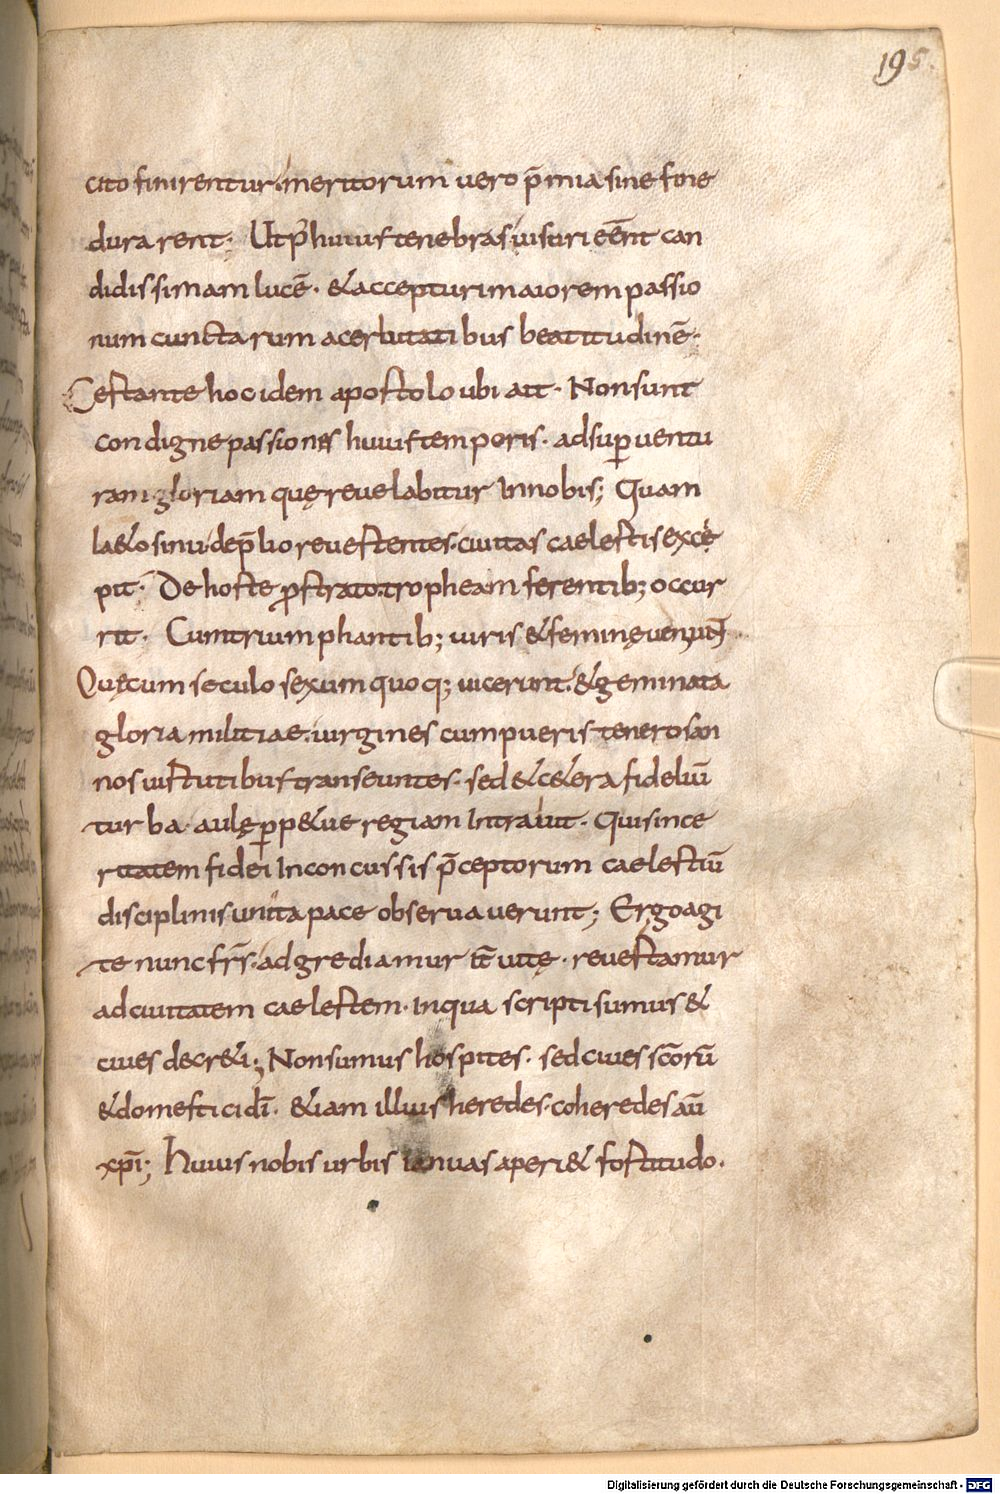 195.
cito finirentur. meritorum vero p̄mia sine fine
durarent. Ut p̄ huius tenebras uisuri eēnt can
didissimam lucē. & accepturi maiorem passio
num cunctarum acerbitatibus beatitudinē.
Testante hoc idem apostolo ubi ait. Non sunt
condigne passiones huius temporis. ad suꝑuentu
ram gloriam quę reuelabitur In nobis; Quam
l&o sinu. de p̄lio reuertentes. ciuitas caelestis excę
pit. De hoste ꝓstrato. tropheam ferentib; occur
rit. Cum triumphantib; uiris & feminę ueniunt
Quę cum seculo sexum quoq; uicerunt. & geminata
gloria militiae. uirgines cum pueris teneros an
nos uirtutibus transeuntes. sed & c&era fideliū
turba. aulę ꝑp&uę regiam Intrauit. Qui since
ritatem fidei Inconcussis p̄ceptorum caelestiū
disciplinis unita pace obseruauerunt; Ergo agi
te nunc fr̄s. adgrediamur it̄ uitę. reuertamur
ad ciuitatem caelestem. In qua scripti sumus &
ciues decr&i; Non sumus hospites. sed ciues sc̄orū
& domestici dī. & iam illius heredes. coheredes aū
xp̄i; Huius nobis urbis ianuas aperi& fortitudo.
Digitalisierung gefördert durch die Deutsche Forschungsgemeinschaft - DFG